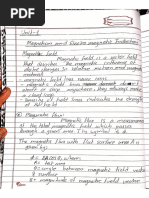 Unit-1
Magnetism and Electro magnetic Induction
Magnetic field
Magnetic field is a vector field
that describes the magnetic influence of
electric charges in relative motion and magnet
material.
magnetic field lines never cross
magnetic field
density of field lines indicates the strength
of the field
Magnetic flux:-
Magnetic flux is a measurement
of the total magnetic field which passes
through a given area. The symbol is φ.
The magnetic flux with flat surface area A is
given by,
φ = BA cosθ, where
A = area
θ = angle between magnetic field vector
& surface.
B = magnitude of magnetic field vector